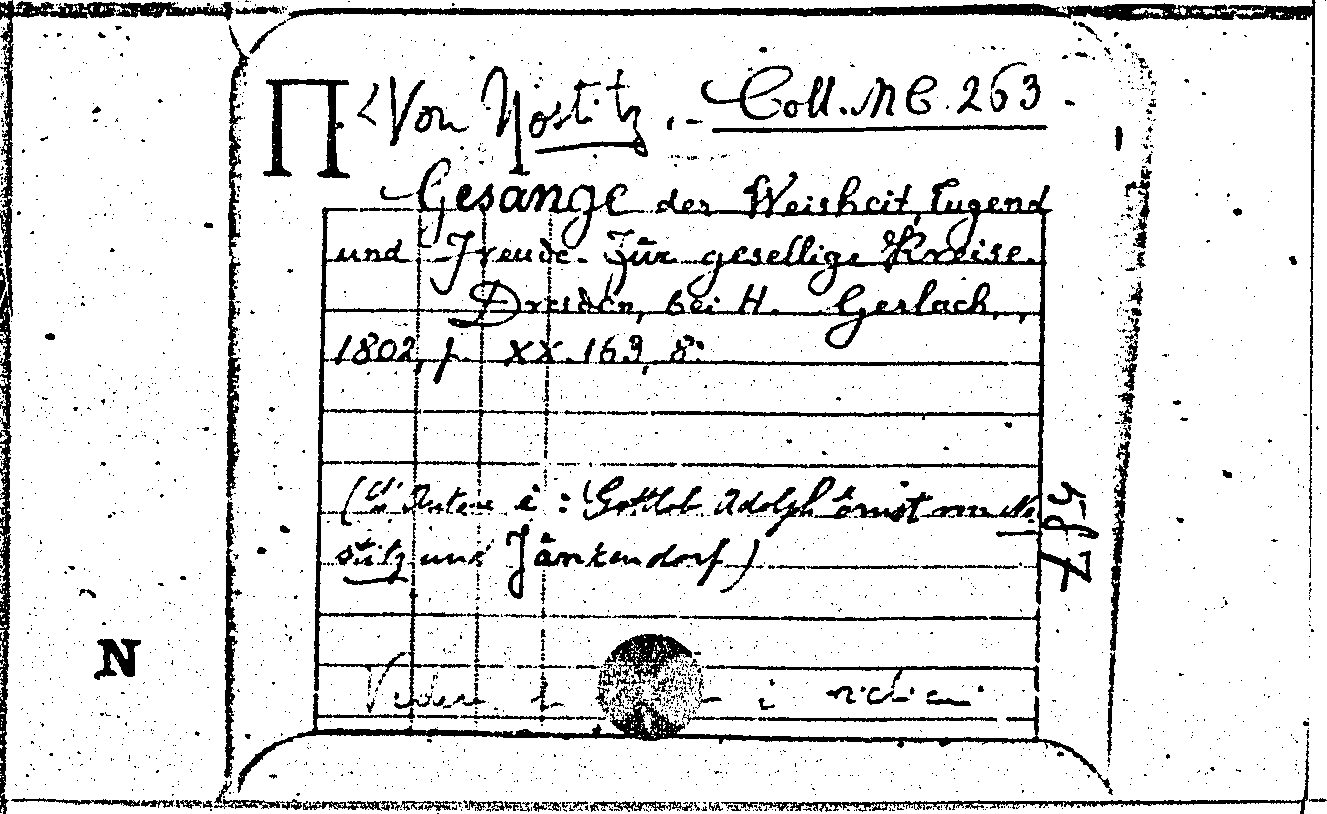 Π <Von Nostitz .- Coll. MC. 263.
Gesänge der Weisheit, Tugend
und Freude. Für gesellige Kreise.
Dresden, bei H. Gerlach,
1802, p. XX. 163, 8°
(L'Autore è: Gottlob Adolph Ernst von No-
stitz und Jänkendorf)
Vedere i richiami
587
N